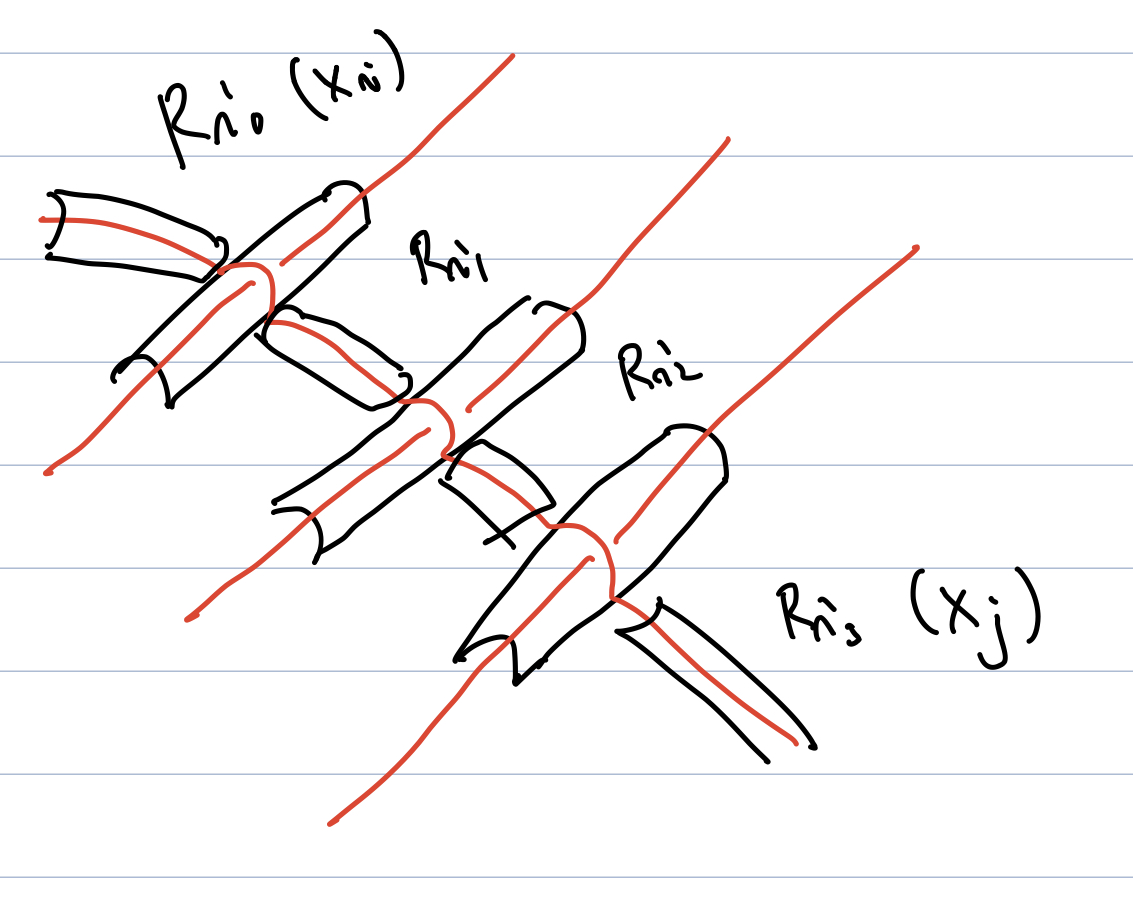 Ri0 (xi)
Ri1
Ri2
Ri3 (xj)